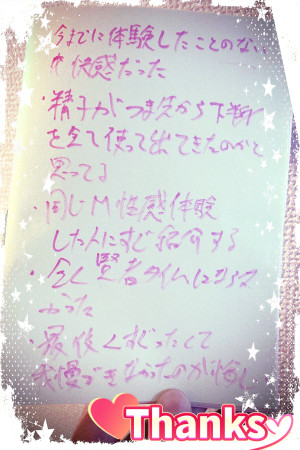 今までに体験したことのな
い快感だった
・精子がつま先から下半身
を全て使って出てきたのかと
思ってる
・同じM性感体験
した人にすぐ紹介する
・全く賢者タイムにならな
かった
・最後くすぐったくて
我慢できなかったのが悔し
Thanks